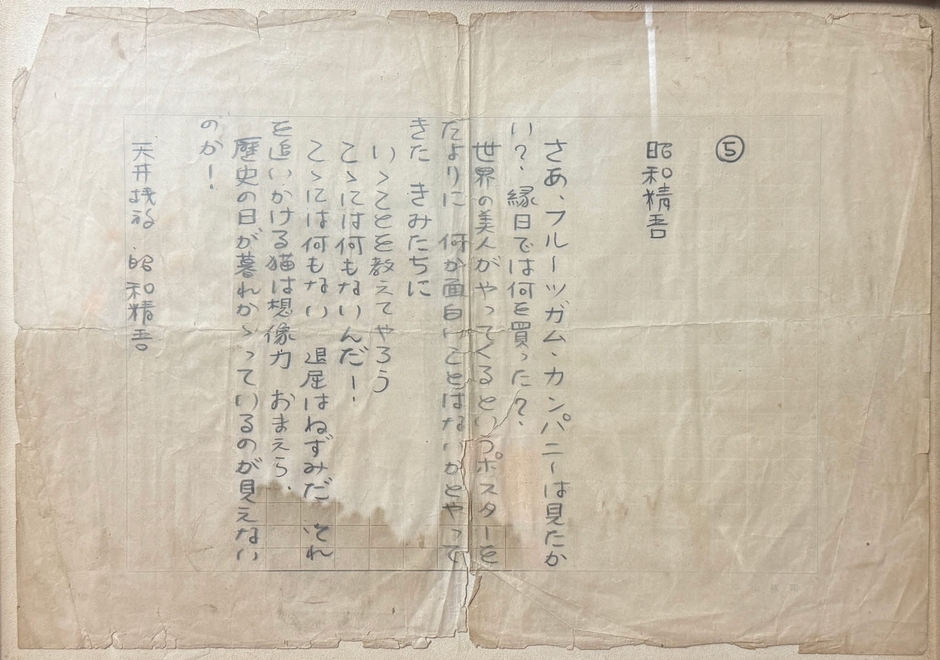 ⑤
昭和精吾
さあ、フルーツガム・カンパニーは見たか
い?、縁日では何を買った?、
世界の美人がやってくるというポスターを
たよりに 何か面白いことはないかとやって
きた きみたちに
いゝことを教えてやろう
こゝには何もないんだー!
こゝには何もない 退屈はねずみだ それ
を追いかける猫は想像力 おまえら、
歴史の日が暮れかゝっているのが見えない
のか!
天井桟敷 昭和精吾